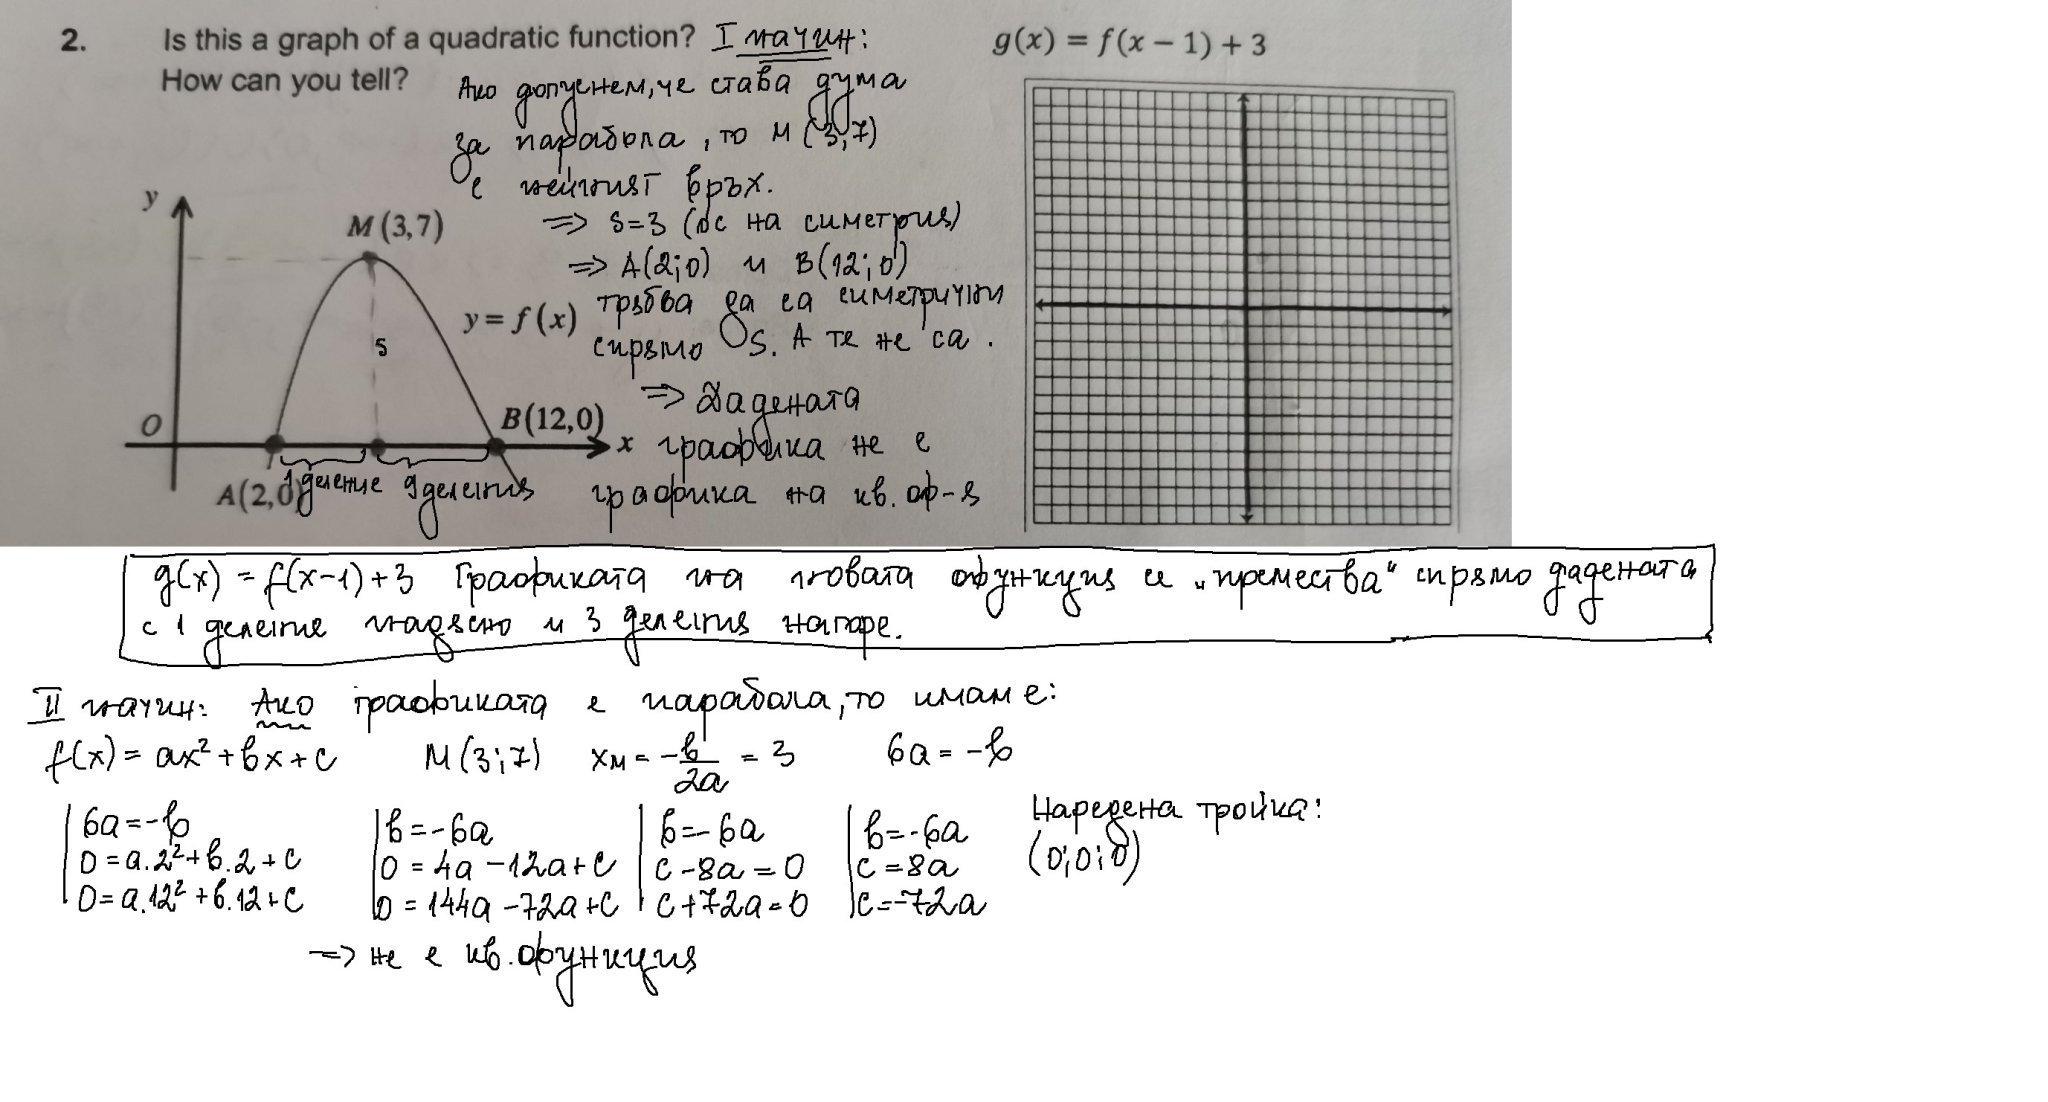 2. Is this a graph of a quadratic function? I начин:
How can you tell?
Ако допуснем, че става дума
за парабола, то M (3,7)
е нейният връх.
=> s=3 (ос на симетрия)
=> A(2;0) и B(12;0)
трябва да са симетрични
спрямо s. А те не са.
=> Дадената
графика не е
графика на кв. ф-я
y
M (3,7)
y = f (x)
s
O
B(12,0)
x
A(2,0)
1 деление 9 деления
g(x) = f(x − 1) + 3
g(x) = f(x-1)+3 Графиката на новата функция се „премества“ спрямо дадената
с 1 деление надясно и 3 деления нагоре.
II начин: Ако графиката е парабола, то имаме:
f(x) = ax² + bx + c M(3;7) xM = -b/2a = 3 6a = -b
6a = -b
0 = a.2² + b.2 + c
0 = a.12² + b.12 + c
b = -6a
0 = 4a - 12a + c
0 = 144a - 72a + c
b = -6a
c - 8a = 0
c + 72a = 0
b = -6a
c = 8a
c = -72a
Наредена тройка:
(0;0;0)
=> не е кв. функция